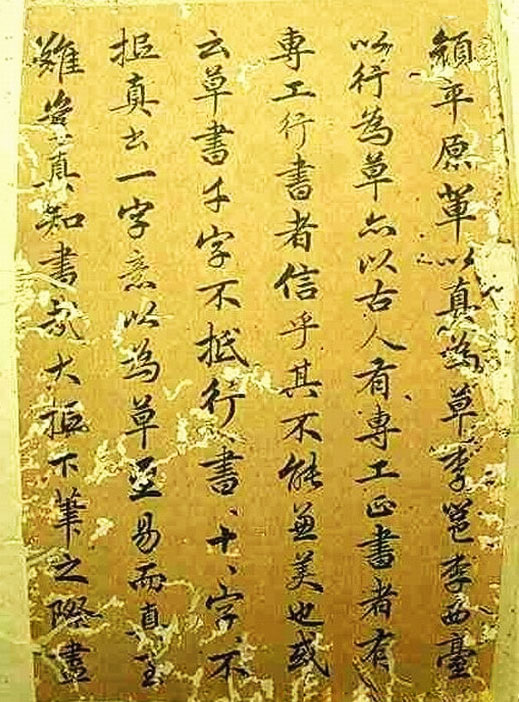 顔平原軰以真為草李邕李西臺
以行為草亦以古人有專工正書者有
專工行書者信乎其不能兼美也或
云草書千字不抵行書十字不
抵真书一字意以為草至易而真至
難豈真知書哉大抵下筆之際盡